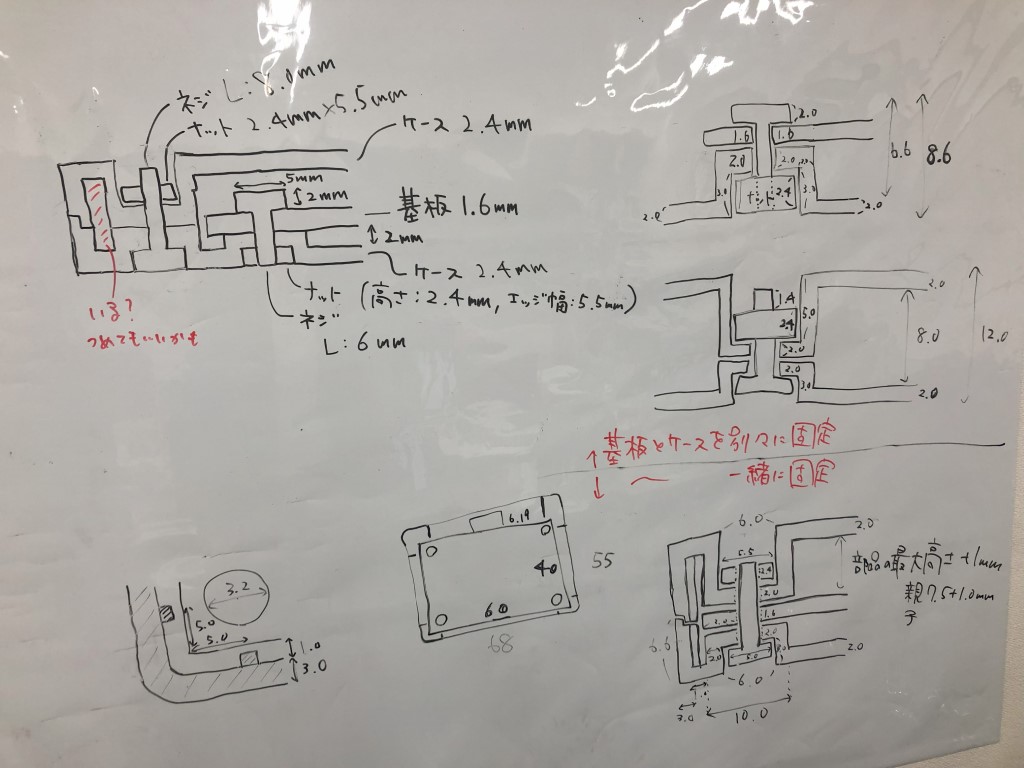 ネジ L:8.0mm
ナット 2.4mm×5.5mm
ケース 2.4mm
5mm
2mm
基板 1.6mm
2mm
ケース 2.4mm
ナット (高さ:2.4mm, エッジ幅:5.5mm)
ネジ
L:6mm
いる?
つめてもいいかも
2.0
1.6
1.6
2.0
2.0
3.0
2.4
3.0
2.0
2.0
6.6
8.6
1.4
2.4
5.0
2.0
2.0
3.0
2.0
8.0
12.0
2.0
↑基板とケースを別々に固定
↓ 〃 一緒に固定
3.2
5.0
5.0
1.0
3.0
6.19
40
60
55
68
6.0
5.5
2.4
2.0
2.0
1.6
2.0
2.0
2.0
5.0
3.0
2.0
6.6
6.0
3.0
10.0
部品の最大高さ+1mm
親 7.5+1.0mm
子